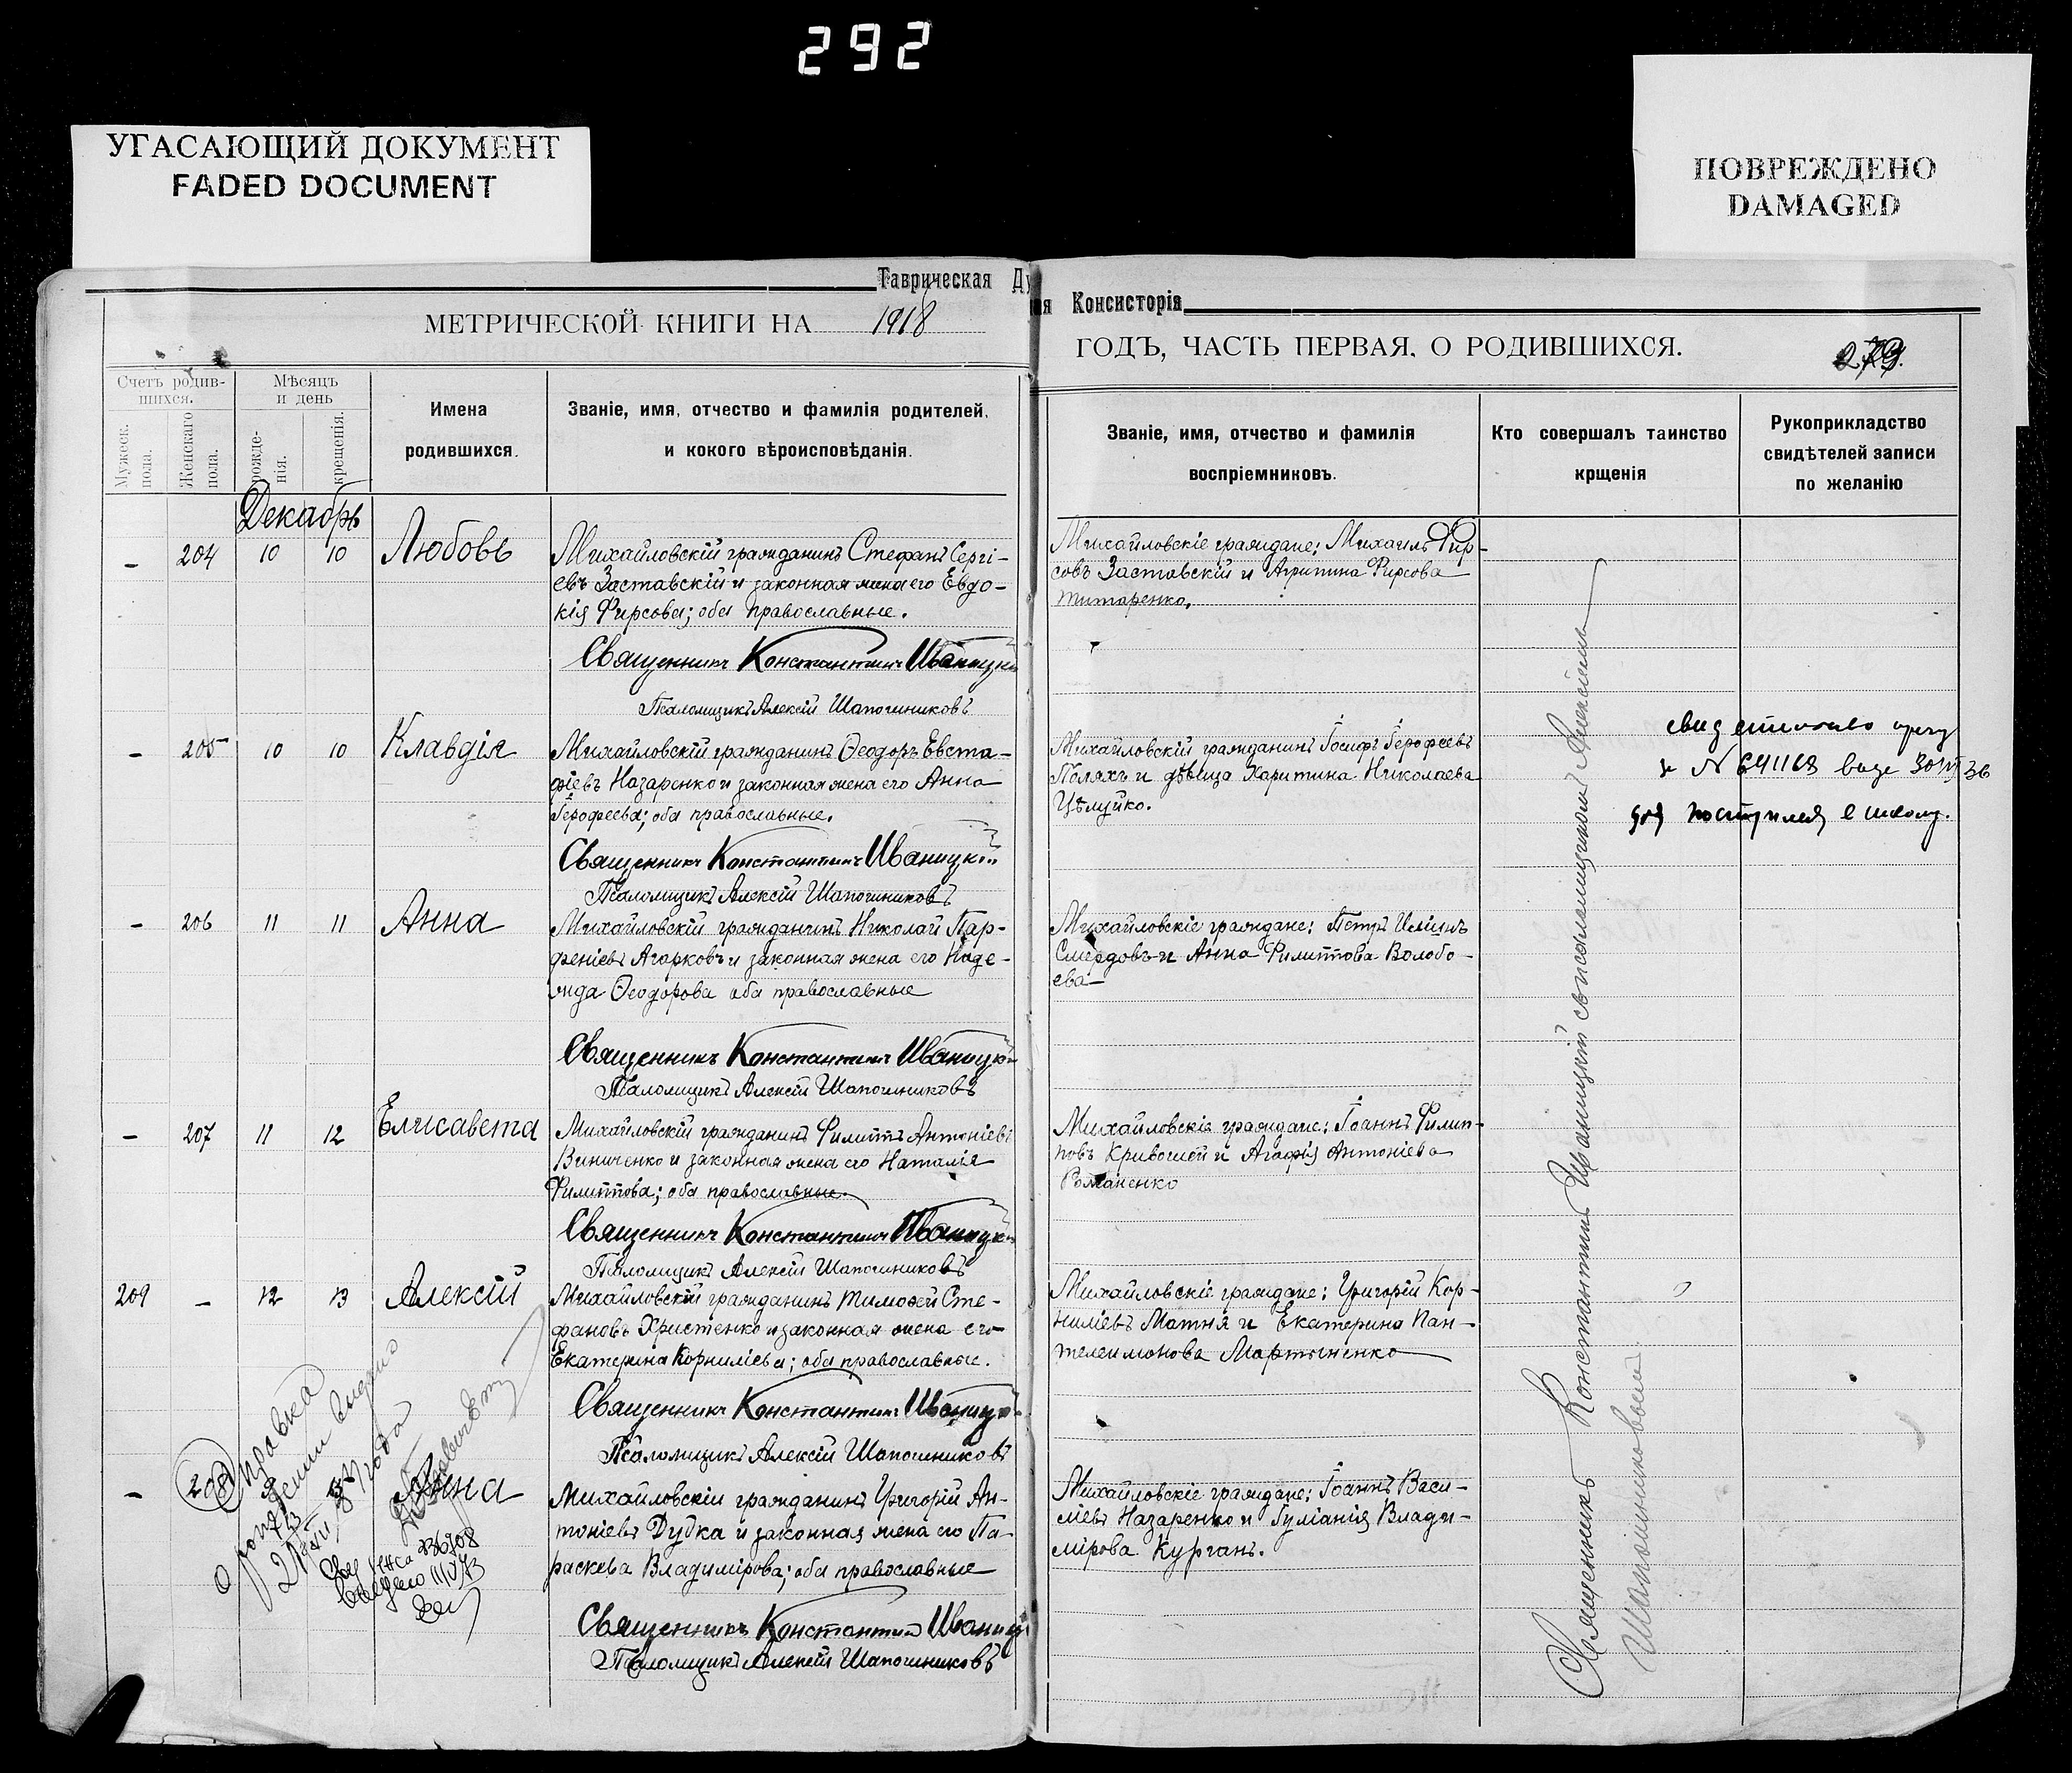 292
УГАСАЮЩИЙ ДОКУМЕНТ
FADED DOCUMENT
ПОВРЕЖДЕНО
DAMAGED
Таврическая Ду
ая Консисторія
МЕТРИЧЕСКОЙ КНИГИ НА 1918
ГОДЪ, ЧАСТЬ ПЕРВАЯ, О РОДИВШИХСЯ.
279.
Счетъ родив-
шихся.
Мужеск. пола.
Женскаго пола.
Мѣсяцъ
и день
рожде-
нія.
крещенія.
Имена
родившихся.
Званіе, имя, отчество и фамилія родителей,
и кокого вѣроисповѣданія.
Званіе, имя, отчество и фамилія
воспріемниковъ.
Кто совершалъ таинство
крщенія
Рукоприкладство
свидѣтелей записи
по желанію
Декабрь
– 204 10 10 Любовь
Михайловскій гражданинъ Стефанъ Сергі-
евъ Заставскій и законная жена его Евдо-
кія Фирсова; оба православные.
Священникъ Константинъ Иваницкій
Псаломщикъ Алексій Шапошниковъ
Михайловскіе граждане: Михаилъ Фир-
совъ Заставскій и Агрипина Фирсова
Титаренко.
– 205 10 10 Клавдія
Михайловскій гражданинъ Ѳеодоръ Евста-
фіевъ Назаренко и законная жена его Анна
Іерофеева; оба православные.
Священникъ Константинъ Иваницкій
Псаломщикъ Алексій Шапошниковъ
Михайловскій гражданинъ Іосифъ Іерофеевъ
Поляхъ и дѣвица Харитина Николаева
Цѣлуйко.
№ 641168
для поступлен в школу.
– 206 11 11 Анна
Михайловскій гражданинъ Николай Пар-
феніевъ Агарковъ и законная жена его Наде-
жда Ѳеодорова оба православные
Священникъ Константинъ Иваницкій
Псаломщикъ Алексій Шапошниковъ
Михайловскіе граждане: Петръ
Смердовъ и Анна Филиппова Волобо-
ева
– 207 11 12 Елисавета
Михайловскій гражданинъ Филиппъ Антоніевъ
Виниченко и законная жена его Наталія
Филиппова; оба православные.
Священникъ Константинъ Иваницкій
Псаломщикъ Алексій Шапошниковъ
Михайловскіе граждане: Іоаннъ Филип-
повъ Кривошей и Агафія Антоніева
Романенко
209 – 12 13 Алексій
Михайловскій гражданинъ Тимоѳей Сте-
фановъ Христенко и законная жена его
Екатерина Корниліева; оба православные.
Священникъ Константинъ Иваницкій
Псаломщикъ Алексій Шапошниковъ
Михайловскіе граждане: Григорій Кор-
ниліевъ Матня и Екатерина Пан-
телеимонова Мартыненко
– 208 Анна
Михайловскій гражданинъ Григорій Ан-
тоніевъ Дудка и законная жена его Па-
раскева Владимірова; оба православные
Священникъ Константинъ Иваницкій
Псаломщикъ Алексій Шапошниковъ
Михайловскіе граждане: Іоаннъ Васи-
ліевъ Назаренко и Іуліанія Влади-
мірова Курганъ.
Справка
о рождении выдано
Священникъ Константинъ Иваницкій съ псаломщикомъ Алексіемъ
Шапошниковымъ